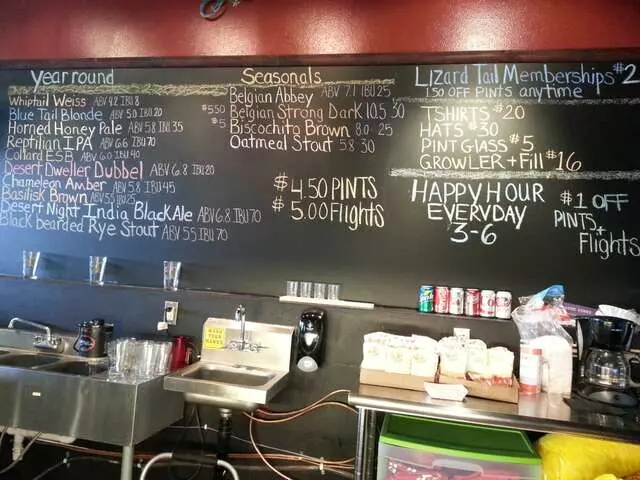 Year round
Whiptail Weiss ABV 4.2 IBU 8
Blue Tail Blonde ABV 5.0 IBU 20
Horned Honey Pale ABV 5.8 IBU 35
Reptilian IPA ABV 6.6 IBU 70
Collard ESB ABV 6.0 IBU 40
Desert Dweller Dubbel ABV 6.8 IBU 20
Chameleon Amber ABV 5.8 IBU 45
Basilisk Brown ABV 5.5 IBU 25
Desert Night India Black Ale ABV 6.8 IBU 70
Black bearded Rye Stout ABV 5.5 IBU 70
Seasonals
Belgian Abbey ABV 7.1 IBU 25
$5.50 Belgian Strong Dark 10.5 30
$5 Biscochito Brown 8.0 25
Oatmeal Stout 5.8 30
$4.50 PINTS
$5.00 Flights
Lizard Tail Memberships $2
1.50 OFF PINTS anytime
TSHIRTS $20
HATS $30
PINT GLASS $5
GROWLER + Fill $16
HAPPY HOUR
EVERYDAY
3-6
$1 OFF
PINTS +
Flights
WASH
YOUR
HANDS